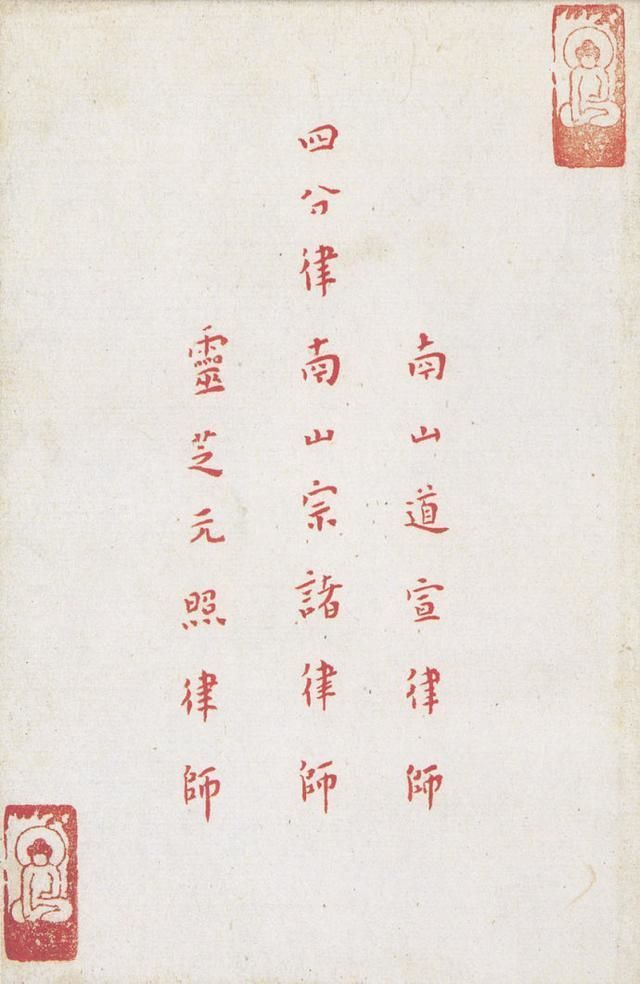 南山道宣律師
四分律南山宗諸律師
靈芝元照律師